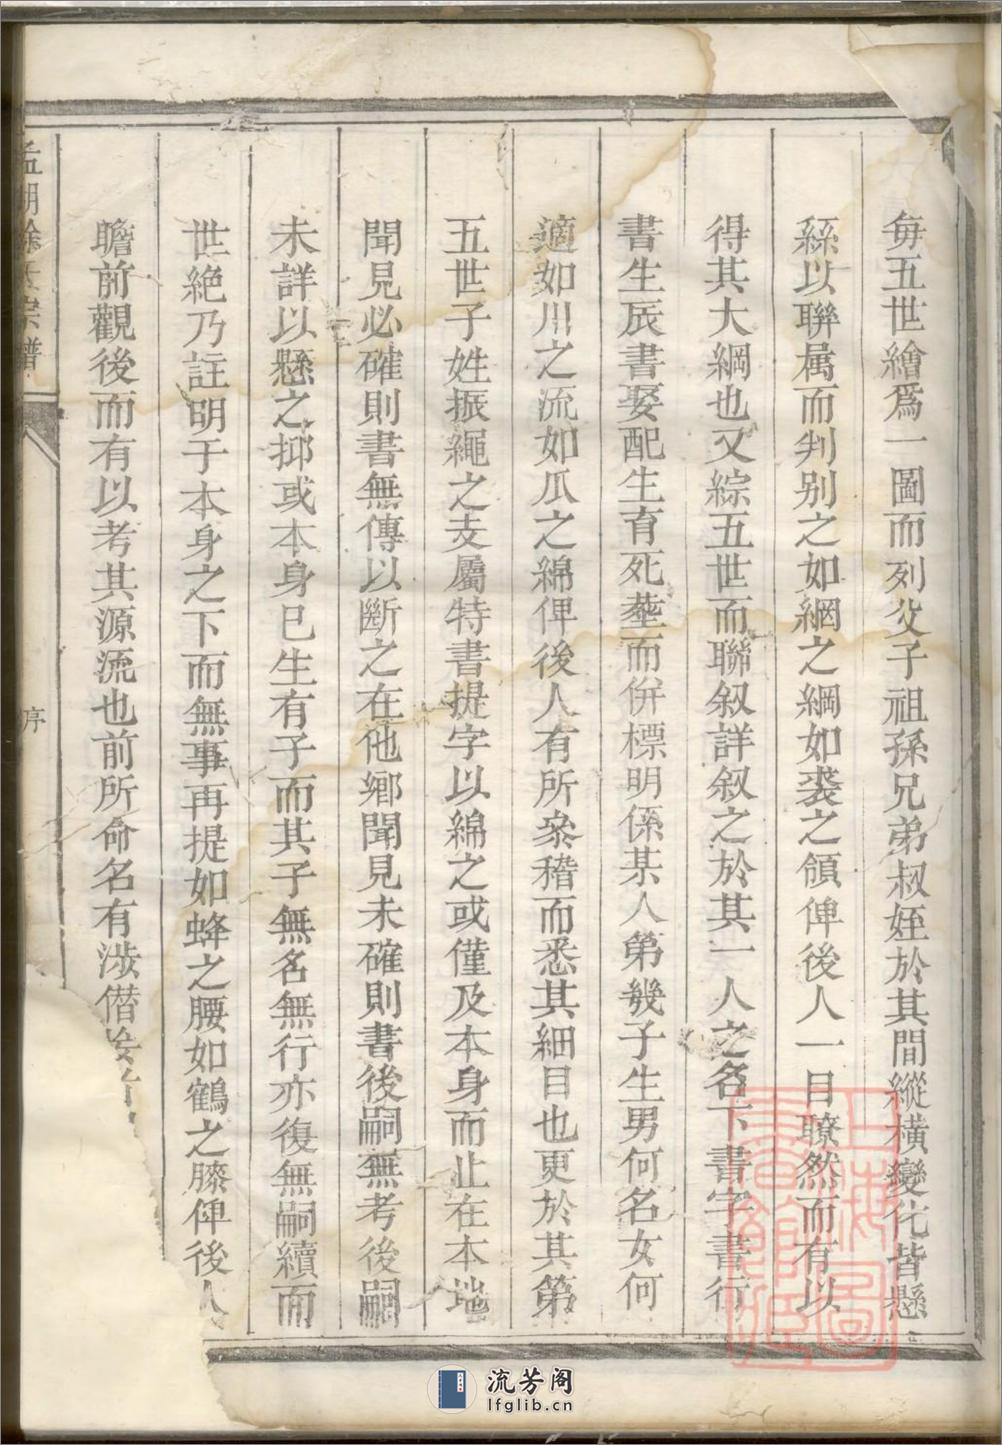 每五世繪爲一圖而列父子祖孫兄弟叔姪於其間縱橫變化皆懸
絲以聯属而判别之如網之綱如裘之領俾後人一目瞭然而有以
得其大綱也又綜五世而聯叙詳叙之於其一人之名下書字書行
書生辰書娶配生育死塟而併標明係某人第幾子生男何名女何
適如川之流如瓜之綿俾後人有所叅稽而悉其細目也更於其第
五世子姓振繩之支屬特書提字以綿之或僅及本身而止在本地
聞見必確則書無傳以斷之在他鄉聞見未確則書後嗣無考後嗣
未詳以懸之抑或本身已生有子而其子無名無行亦復無嗣續而
世絶乃註明于本身之下而無事再提如蜂之腰如鶴之膝俾後人
瞻前觀後而有以考其源流也前所命名有涉僭
序
上海圖書館藏
流芳阁
lfglib.cn